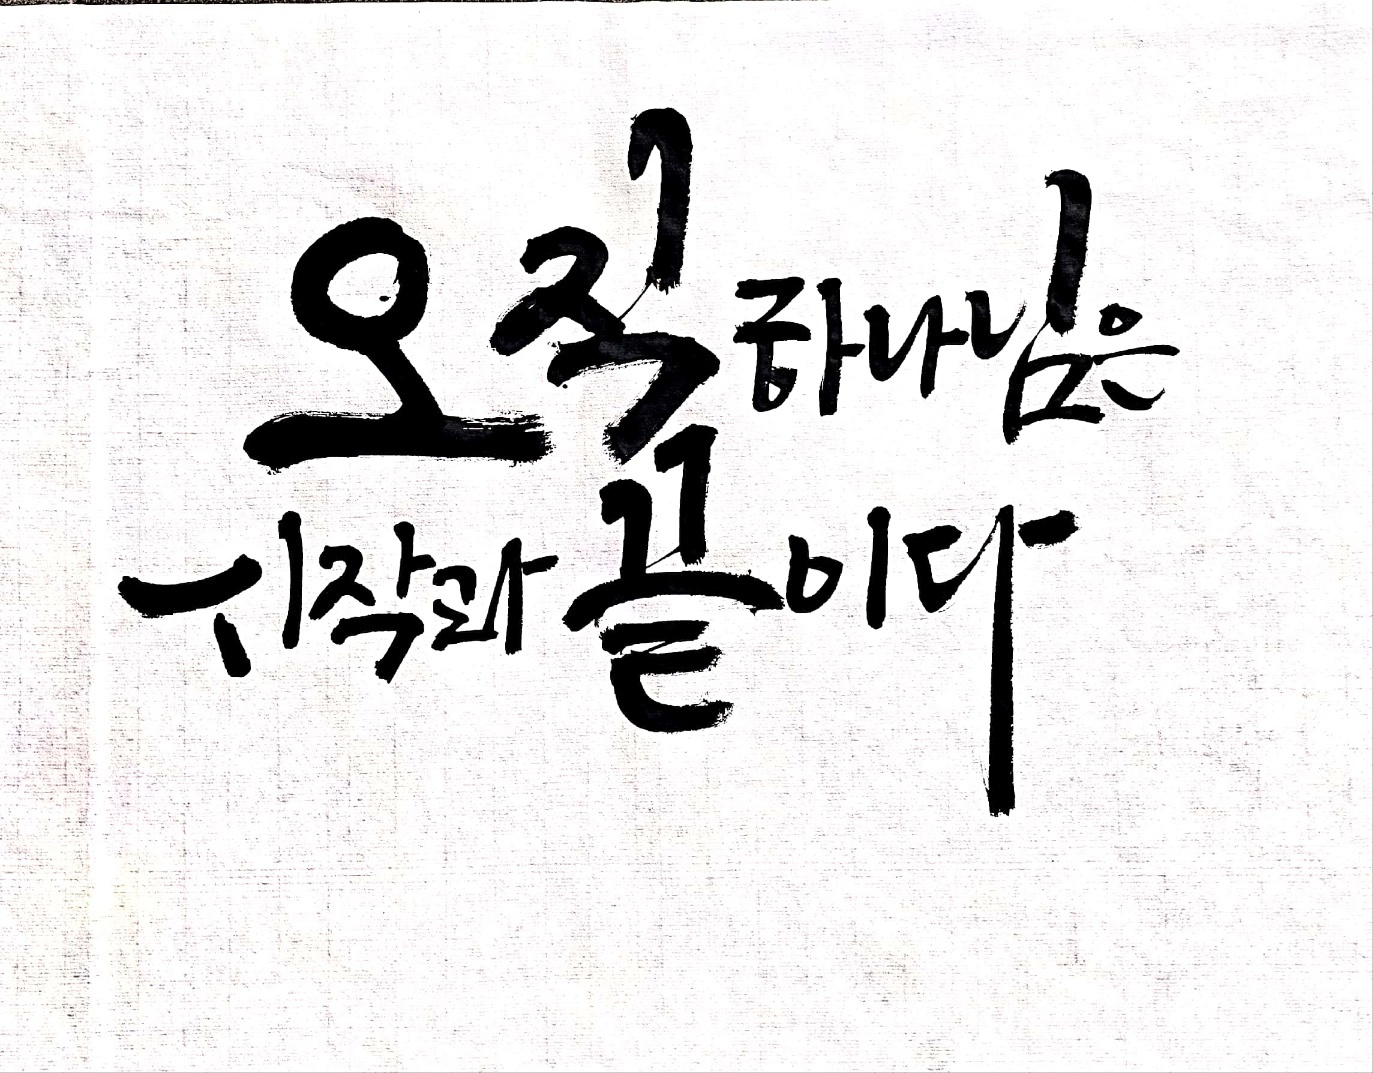 오직 하나님은
시작과 끝이다